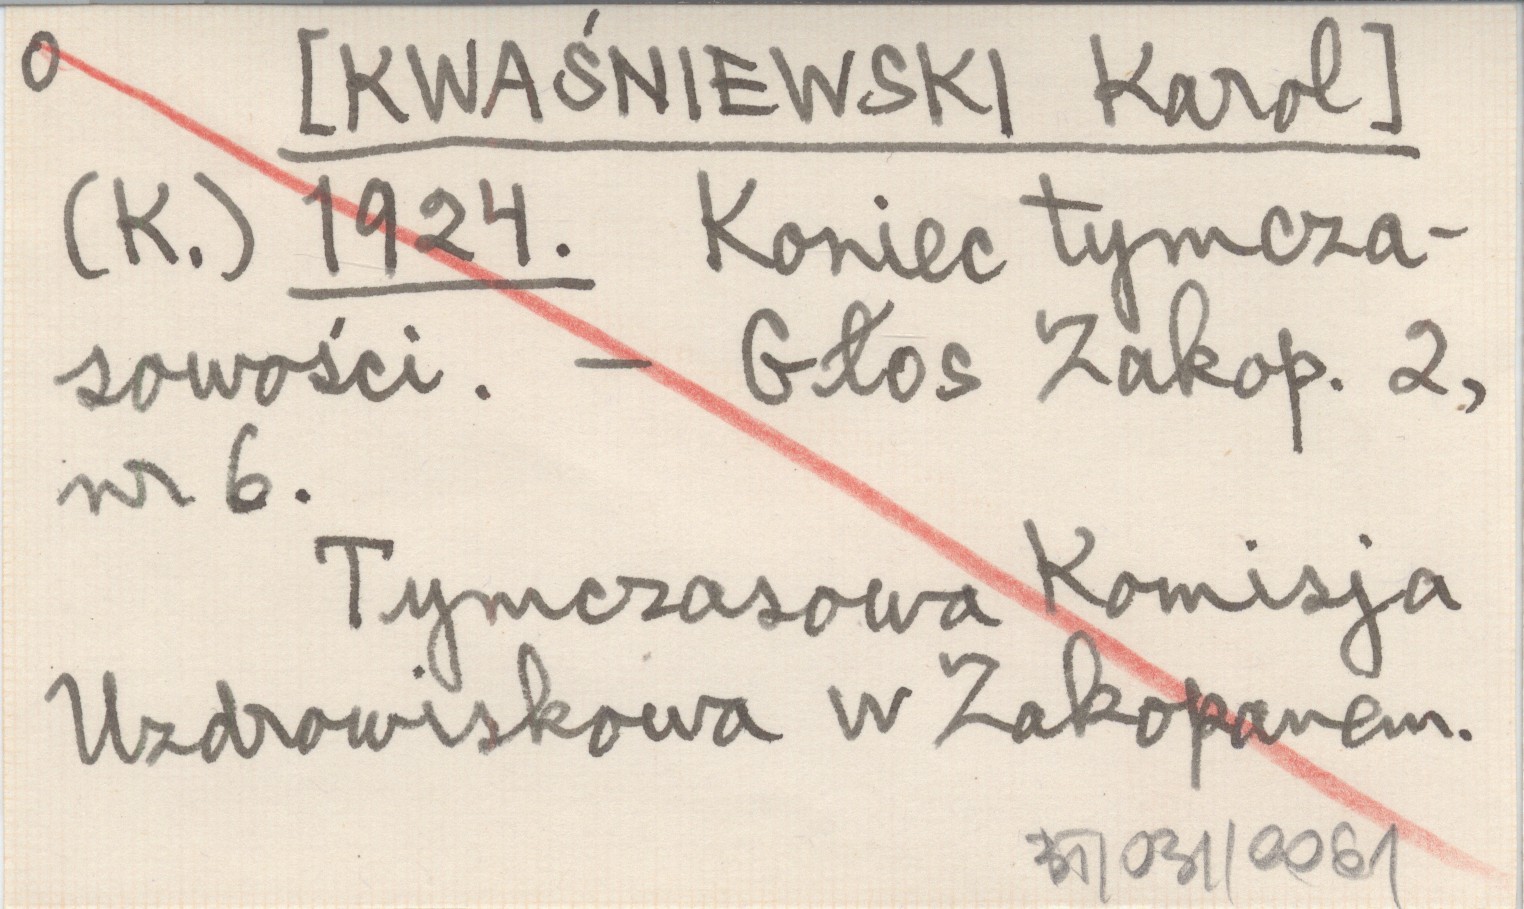 0 [KWAŚNIEWSKI Karol]
(K.) 1924. Koniec tymcza-
sowości. — Głos Zakop. 2,
nr 6.
Tymczasowa Komisja
Uzdrowiskowa w Zakopanem.